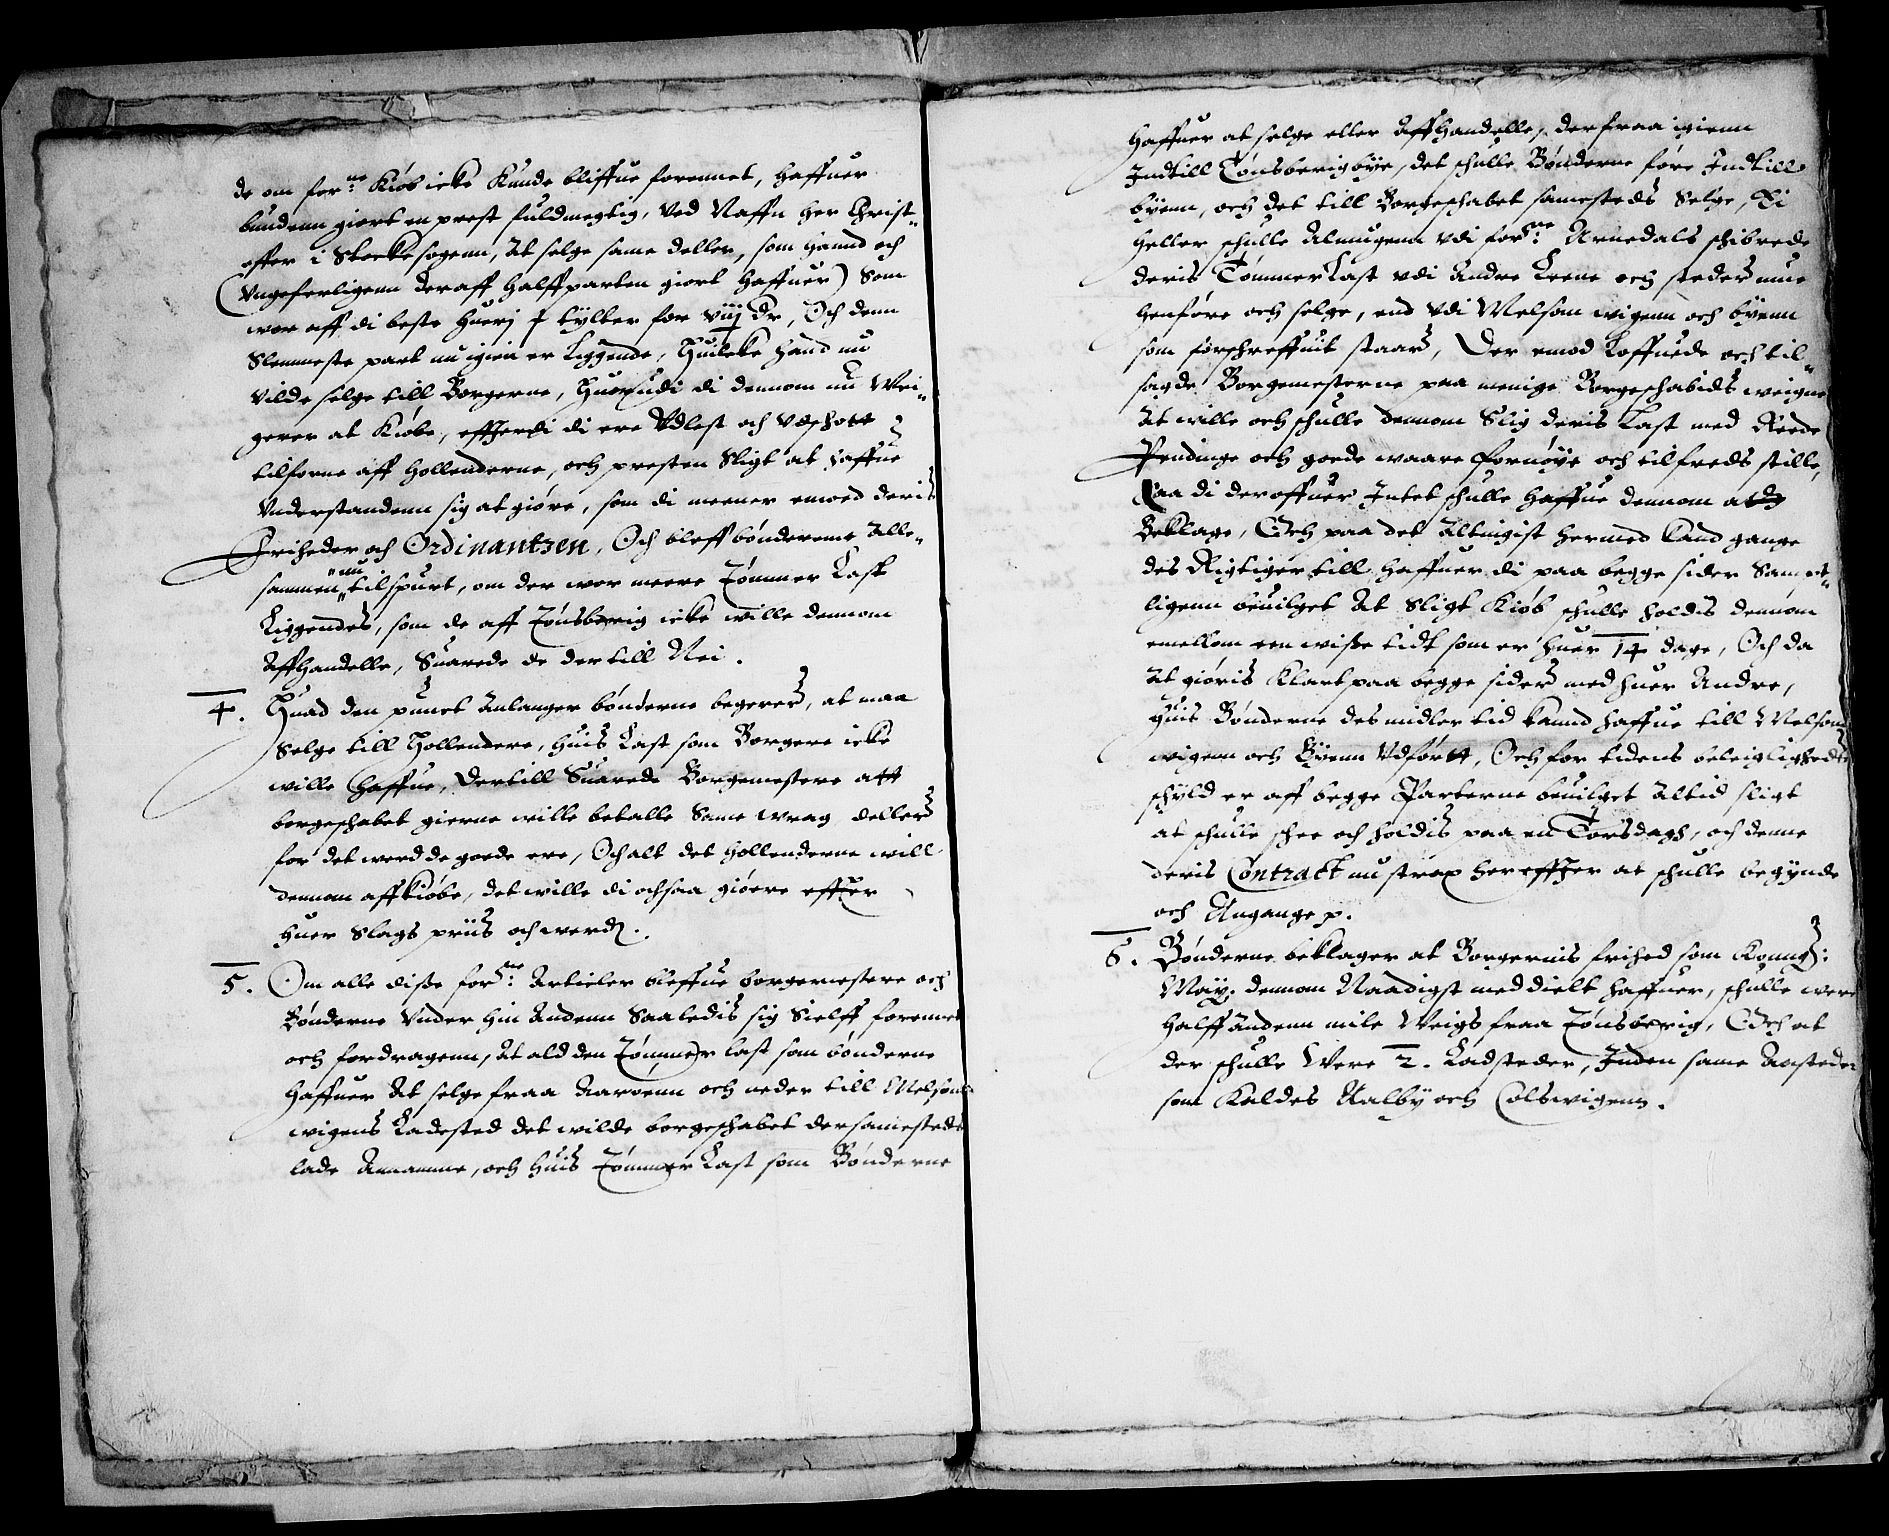 de om for:ne Kiøb icke Kunde bliffue forennet, haffuer
bundenn giort en prest fuldmegtig, Ved Naffn her Christ„
offer i Stockesogenn, At selge same deller, som hannd och
(Vngeferligenn deraff halffparten giort haffuer) Som
wor aff di beste huerj j tylter for viij Dr, Och denn
Slemmeste part nu igien er Liggende, Huilcke hand nu
vilde selge till Borgerne, Huorudi di dennom nu Wei„
gerer at Kiøbe, effterdi di ere Vdlest och vdschott
tilforne aff Hollenderne, och presten Sligt at haffue
Vnderstandenn sig at giøre, som di meener emoed deris
Friheder och Ordinantzen, Och bleff bønderene Alle„
sammen „nu„ tilspurt, om der wor meere Tømmer Last
Liggendes, som de aff Tønsberig icke wille dennom
Affhandelle, Suarede de der till Nei.
4. Huad den punct Anlanger bønderne begerer, at maa
Selge till Hollendere, huis Last som Borgere icke
wille haffue, Dertill Suarede Borgemestere att
borgeschabet gierne wille betalle Same wrag deller
for det werd de goede ere, Och alt det Hollenderne will
dennom affkiøbe, det wille di ochsaa giøere effter
huer Slags priis och werd.
5. Om alle diße for:ne Articler bleffue borgemestere och
Bønderne Vnder hin Andenn Saaledis sig Sielff forennet
och fordragenn, At ald den Tømmer last som bønderne
haffuer At selge fraa Aaroenn och neder till Melsom„
wigens Ladested det wilde borgeschabet der samesteds
lade Annamme, och huis Tømmer Last som Bønderne
haffuer at selge eller affhandelle, derfraa igienn
Indtill Tønsberigbye, det schulle Bønderne føre Indtill
byenn, och det till Borgeschabet samesteds Selge, Ei
heller schulle Almugenn vdi for:ne Arnedals schibrede
deris Tømmer Last vdi Andre Leene och steder mue
henføre och selge, end vdi Melsom wigenn och byenn
som forschreffuit staar, Der emod Loffuede och til„
sagde Borgemesterne paa menige Borgeschabids weigne
At wille och schulle dennom Slig deris Last med Reede
Pendinge och goede waare fornøye och tilfreds stille,
Saa di deroffuer Intet schulle haffue dennom att
Beklage, Och paa det Altingist hermed kand gange
des Rigtiger till, haffuer di paa begge sider Sampt„
ligenn beuilget At Sligt Kiøb schulle holdis dennom
emellom een wiße tidt som er huer 14 dage, Och da
At giøris Klart paa begge sider med huer Andre,
huis Bønderne des midler tid kannd haffue till Melsom
wigenn och Byenn Vdført, Och for tidens beleiglighedtz
schyld er aff begge Parterne beuilget Altid sligt
at schulle schee och holdis paa en Torsdagh, och denne
deris Contract nu strax her effter at schulle begynde
och Angange p.
6. Bønderne beklager at Borgernis frihed som Konng:
May: dennom Naadigst meddielt haffuer, schulle were
halff Andenn mile Weigs fraa Tønsberig, Och at
der schulle Were 2. Ladsteder, Inden same Aasteder
som Kaldes Aalby och Colswigenn.